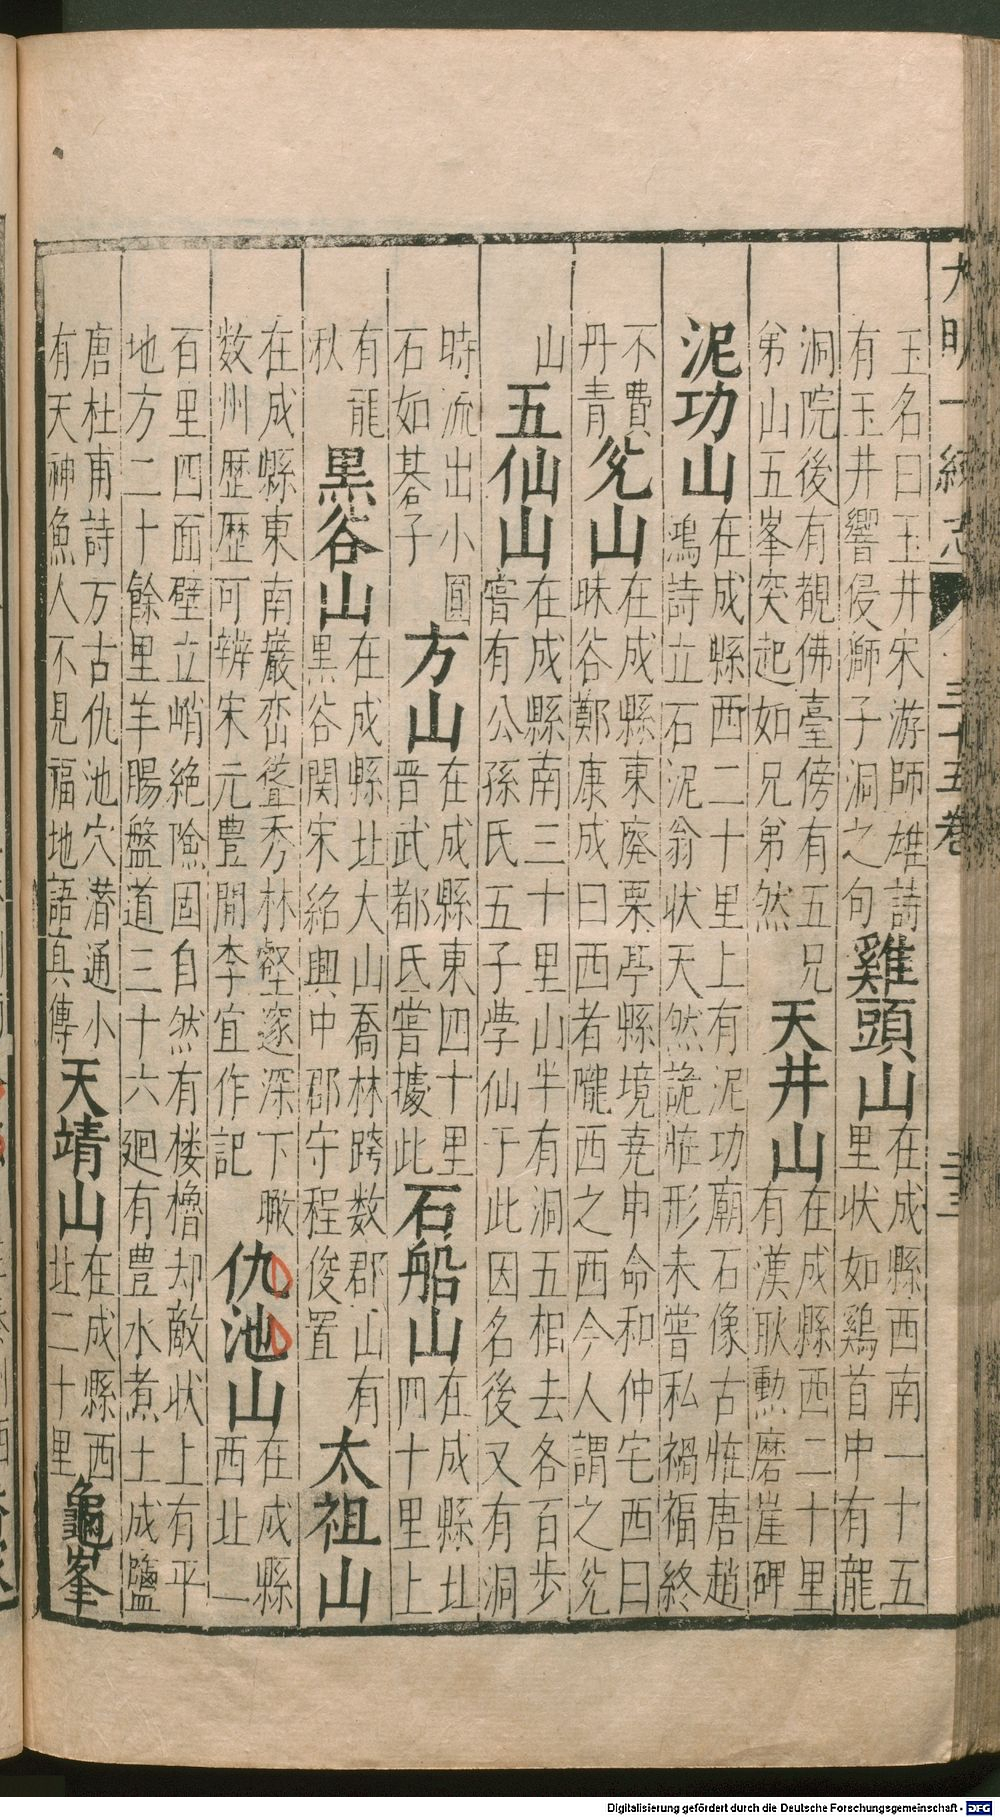 大明一統志　三十五卷　三三
玉名曰玉井宋游師雄詩
有玉井響侵獅子洞之句
雞頭山
在成縣西南一十五
里状如鷄首中有龍
洞院後有觀佛臺傍有五兄
弟山五峯突起如兄弟然
天井山
在成縣西二十里
有漢耿勲磨崖碑
泥功山
在成縣西二十里上有泥功廟石像古恠唐趙
鴻詩立石泥翁状天然詭恠形未嘗私禍福終
不費
丹青
兊山
在成縣東廢栗亭縣境堯申命和仲宅西曰
昧谷鄭康成曰西者隴西之西今人謂之兊
山
五仙山
在成縣南三十里山半有洞五相去各百步
嘗有公孫氏五子學仙于此因名後又有洞
時流出小圓
石如棊子
方山
在成縣東四十里
晋武都氐嘗據此
石船山
在成縣北
四十里上
有龍
湫
黒谷山
在成縣北大山喬林跨数郡山有
黒谷関宋紹興中郡守程俊置
太祖山
在成縣東南巖峦聳秀林壑邃深下瞰
数州歴歴可辨宋元豊間李宜作記
仇池山
在成縣
西北一
百里四面壁立峭絶險固自然有楼櫓却敵状上有平
地方二十餘里羊腸盤道三十六廻有豊水煮土成鹽
唐杜甫詩万古仇池穴潜通小
有天神魚人不見福地語真傳
天靖山
在成縣西
北二十里
龜峯
Digitalisierung gefördert durch die Deutsche Forschungsgemeinschaft - DFG